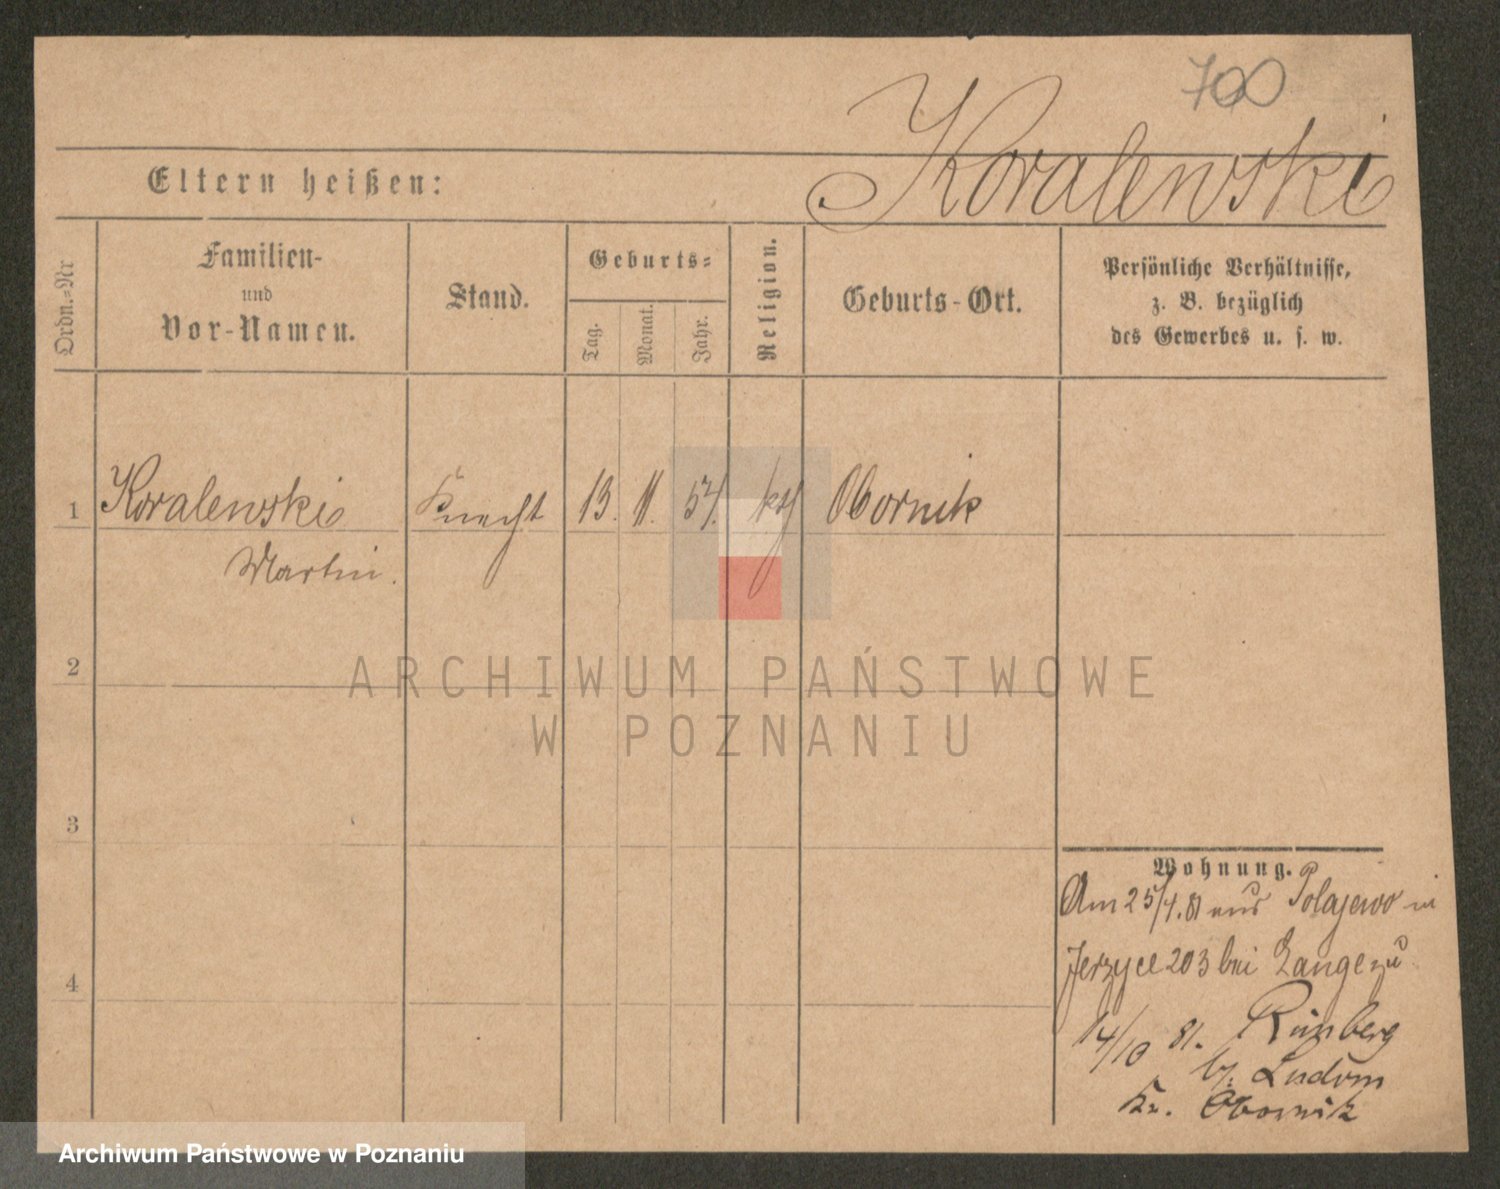 700
Koralewski
Eltern heißen:
Ordn.=Nr
Familien-
und
Vor-Namen.
Stand.
Geburts=
Tag.
Monat.
Jahr.
Religion.
Geburts-Ort.
Persönliche Verhältnisse,
z. B. bezüglich
des Gewerbes u. s. w.
1 Koralewski Knecht 13. 11. 57. kth Obornik
Martin.
2
3
4
Wohnung.
Am 25/4.81 aus Polajewo in
Jerzyce 203 bei Lange zu
14/10 81.
b. Ludom
Kr. Obornik
ARCHIWUM PAŃSTWOWE
W POZNANIU
Archiwum Państwowe w Poznaniu